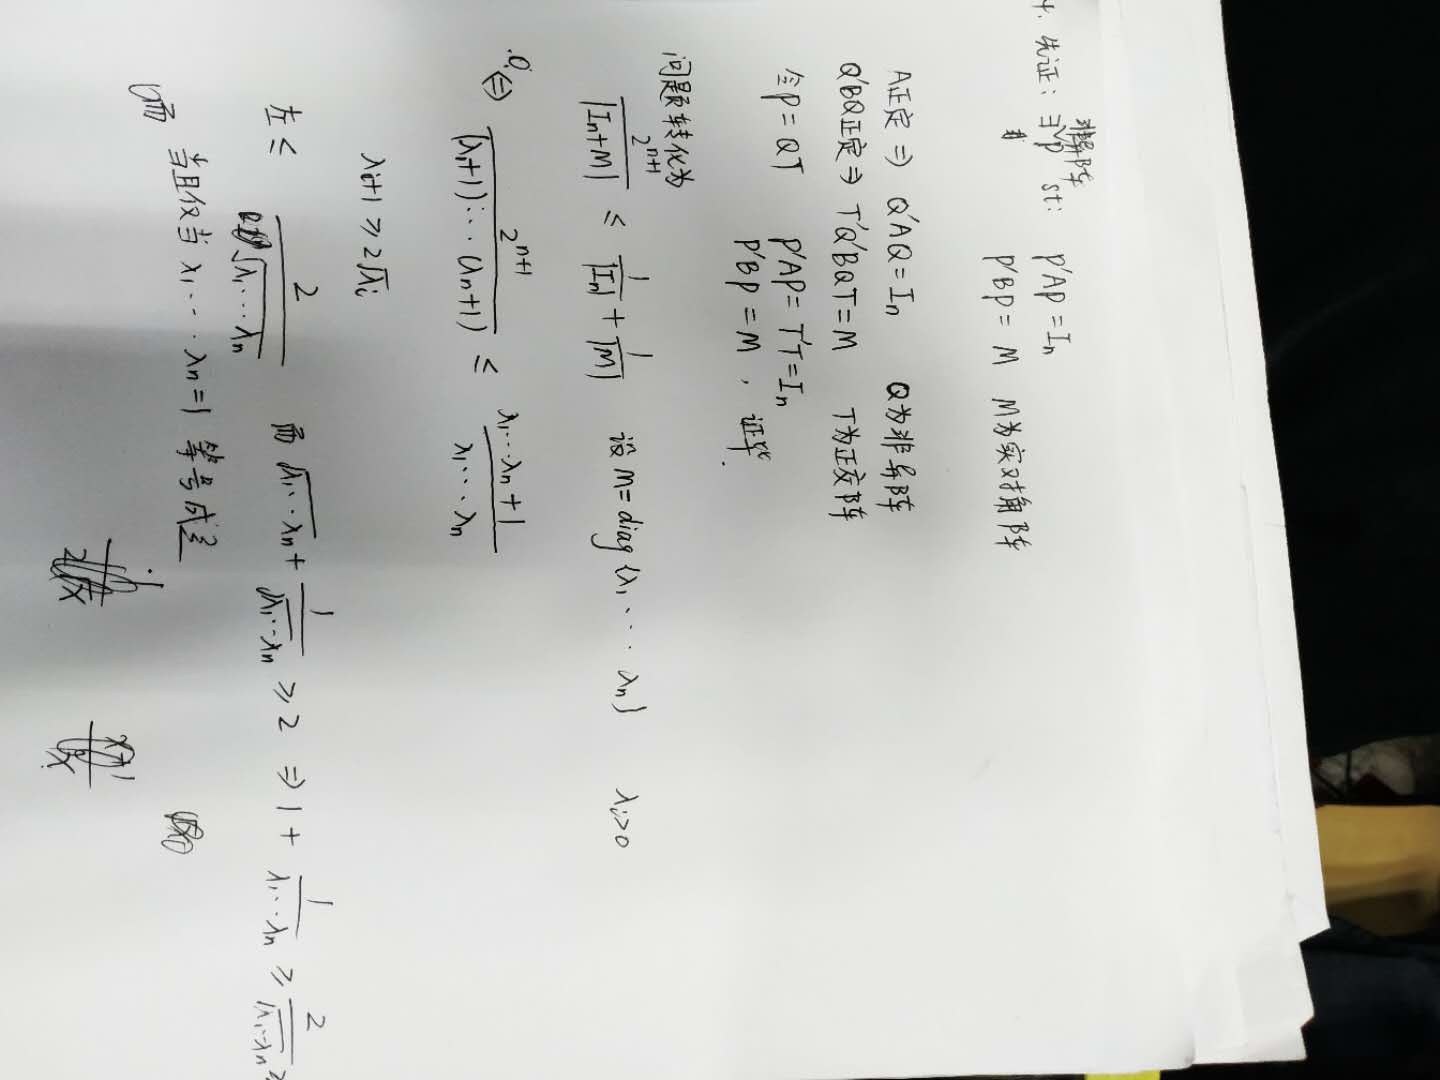 4. 先证: ∃非异阵P st: P'AP = In
P'BP = M M为实对角阵
A正定 ⇒ Q'AQ = In Q为非异阵
Q'BQ正定 ⇒ T'Q'BQT = M T为正交阵
令P = QT P'AP = T'T = In
P'BP = M , 证毕.
问题转化为
2^{n+1}/|In+M| ≤ 1/|In| + 1/|M| 设M = diag{λ1 ... λn} λi>0
⇔ 2^{n+1}/((λ1+1)...(λn+1)) ≤ (λ1...λn+1)/(λ1...λn)
λi+1 ≥ 2√λi
左 ≤ 2/√(λ1...λn) 而 √(λ1...λn) + 1/√(λ1...λn) ≥ 2 ⇒ 1 + 1/(λ1...λn) ≥ 2/√(λ1...λn) ≥
当且仅当 λ1...λn = 1 等号成立
而